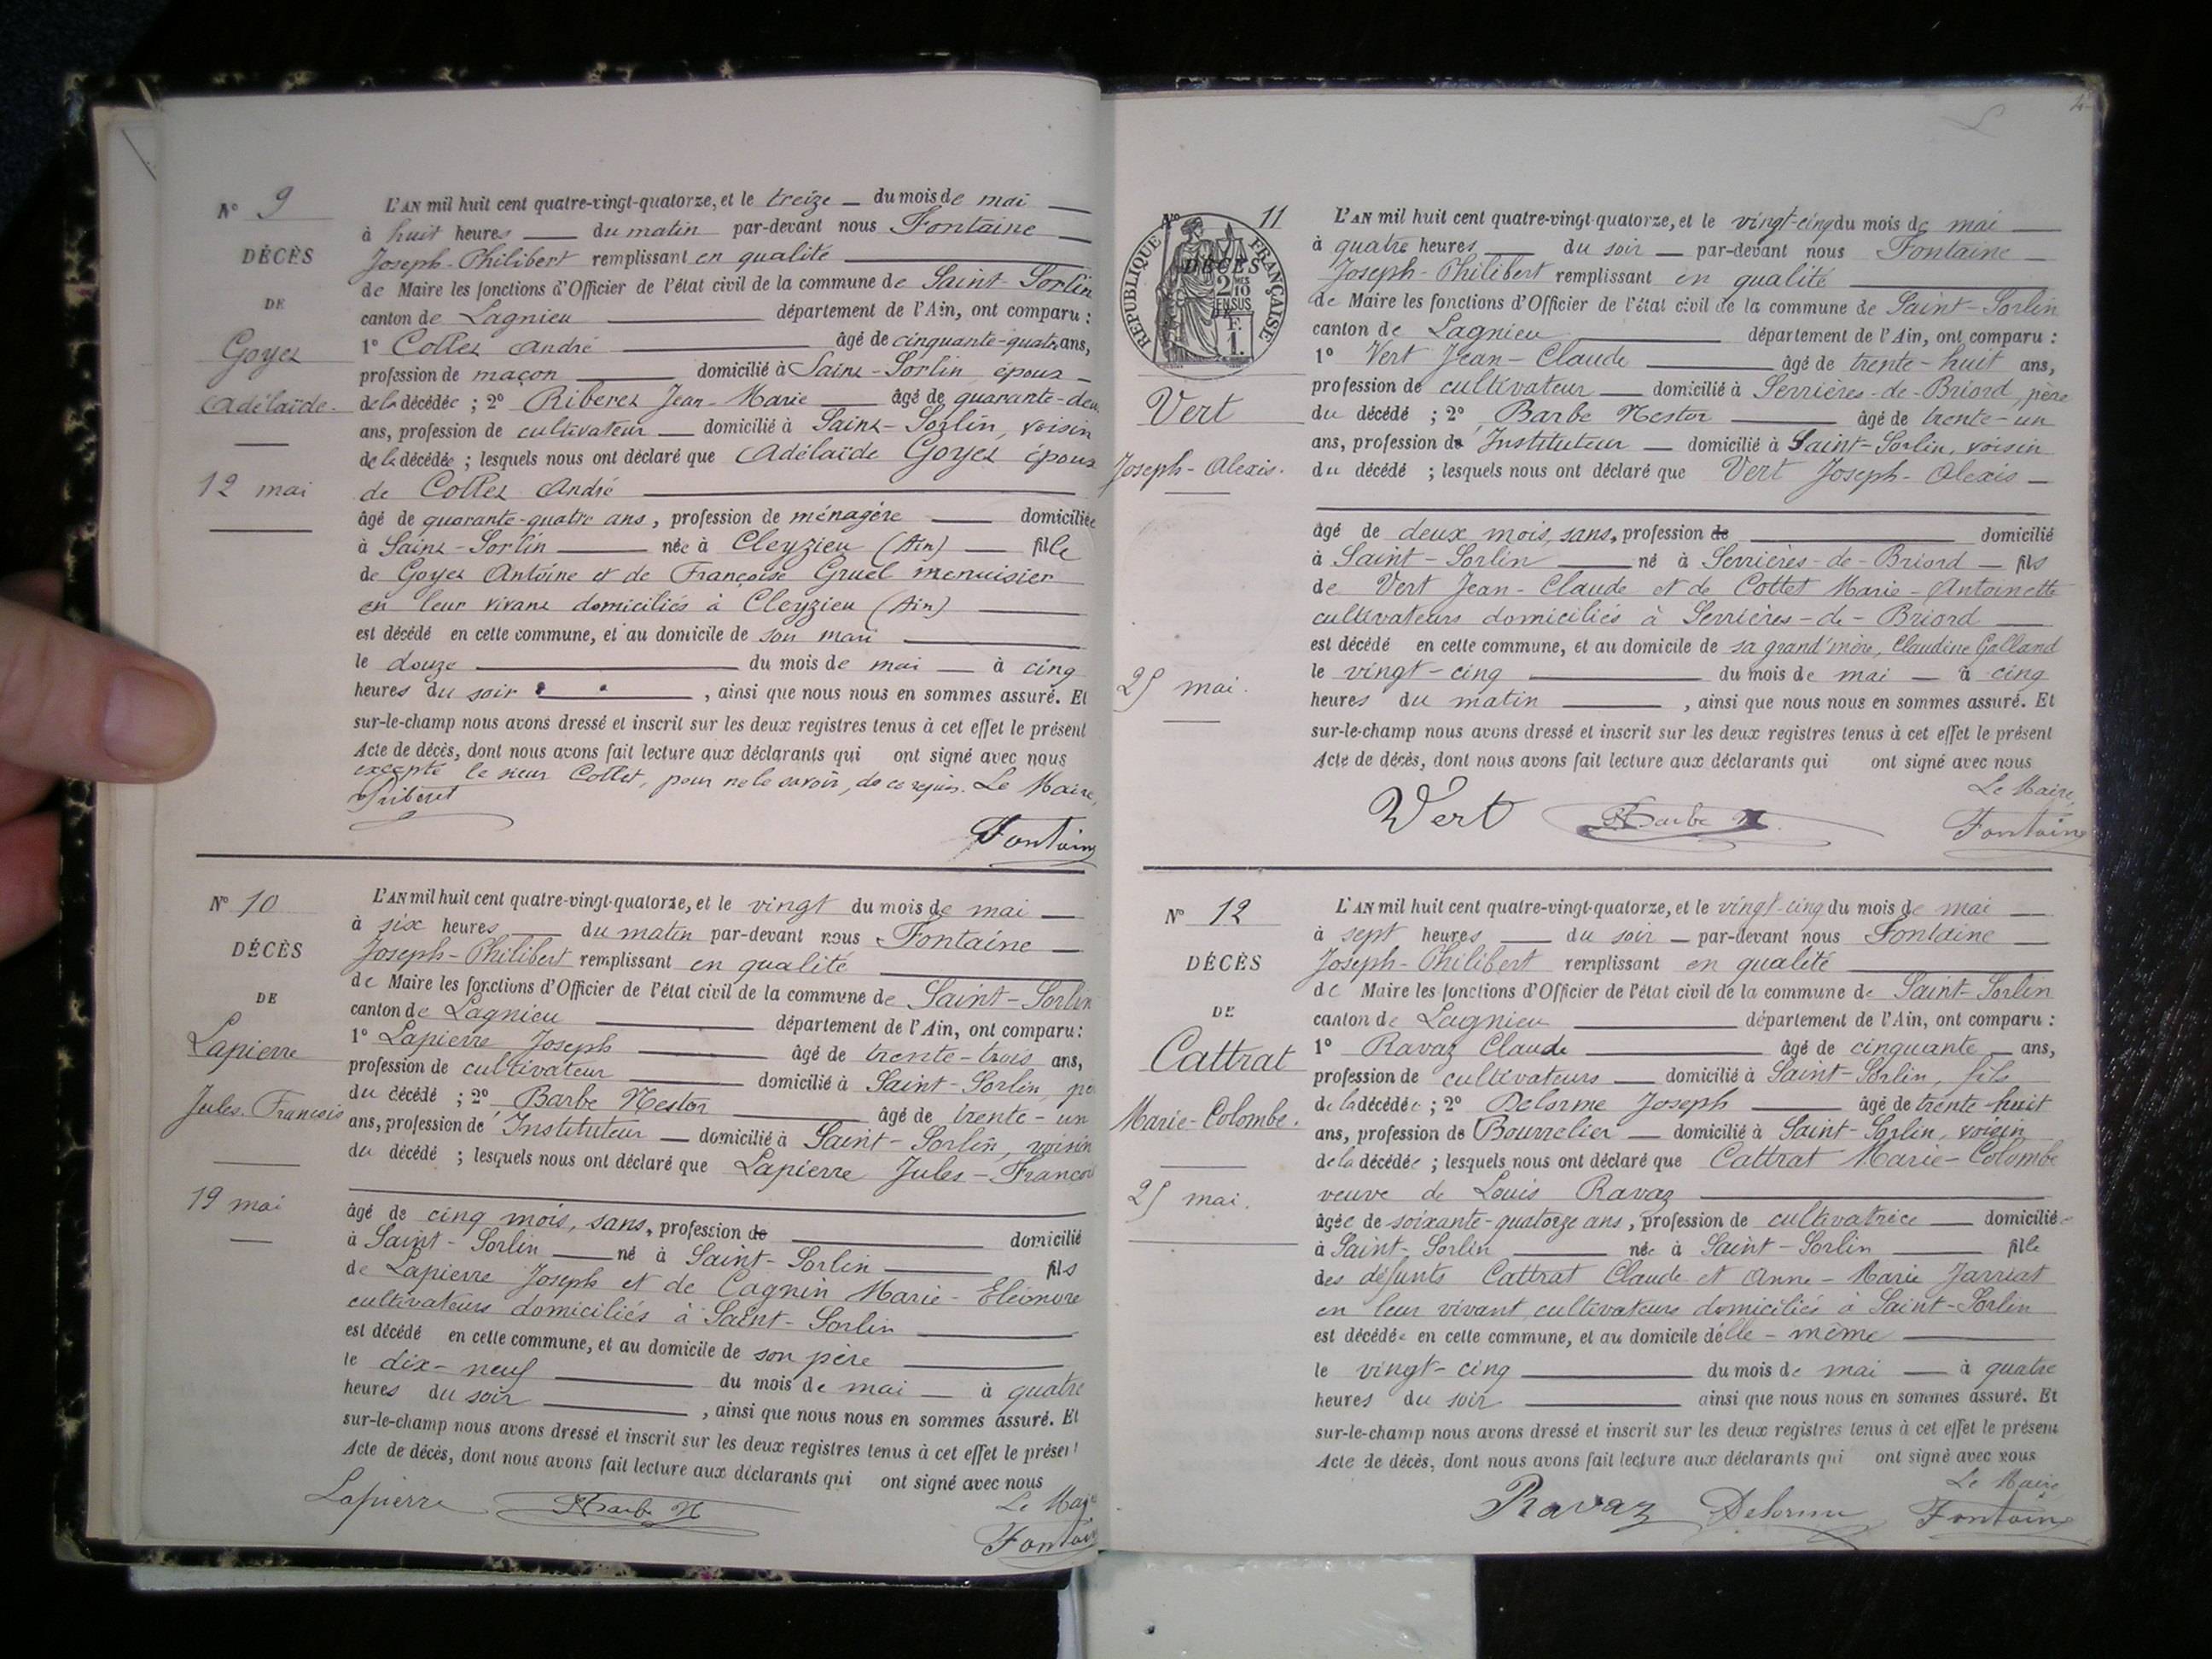 N° 9
DÉCÈS
DE
Goyet
Adélaïde.
12 mai
L'AN mil huit cent quatre-vingt-quatorze, et le treize du mois de mai
à huit heures du matin par-devant nous Fontaine
Joseph-Philibert remplissant en qualité
de Maire les fonctions d'Officier de l'état civil de la commune de Saint-Sorlin
canton de Lagnieu département de l'Ain, ont comparu :
1° Collet André âgé de cinquante-quatre ans,
profession de maçon domicilié à Saint-Sorlin époux
de la décédée ; 2° Riberet Jean-Marie âgé de quarante-deux
ans, profession de cultivateur domicilié à Saint-Sorlin, voisin
de la décédée ; lesquels nous ont déclaré que Adélaïde Goyet épouse
de Collet André
âgé de quarante-quatre ans, profession de ménagère domiciliée
à Saint-Sorlin née à Cleyzieu (Ain) fille
de Goyet Antoine et de Françoise Gruel menuisier
en leur vivant domiciliés à Cleyzieu (Ain)
est décédé en cette commune, et au domicile de son mari
le douze du mois de mai à cinq
heures du soir, ainsi que nous nous en sommes assuré. Et
sur-le-champ nous avons dressé et inscrit sur les deux registres tenus à cet effet le présent
Acte de décès, dont nous avons fait lecture aux déclarants qui ont signé avec nous
excepté le sieur Collet, pour ne le savoir, de ce requis. Le Maire,
Riberet
Fontaine
N° 10
DÉCÈS
DE
Lapierre
Jules-Francois
19 mai
L'AN mil huit cent quatre-vingt-quatorze, et le vingt du mois de mai
à six heures du matin par-devant nous Fontaine
Joseph-Philibert remplissant en qualité
de Maire les fonctions d'Officier de l'état civil de la commune de Saint-Sorlin
canton de Lagnieu département de l'Ain, ont comparu :
1° Lapierre Joseph âgé de trente-trois ans,
profession de cultivateur domicilié à Saint-Sorlin, père
du décédé ; 2° Barbe Nestor âgé de trente-un
ans, profession de Instituteur domicilié à Saint-Sorlin, voisin
du décédé ; lesquels nous ont déclaré que Lapierre Jules-François
âgé de cinq mois, sans, profession de domicilié
à Saint-Sorlin né à Saint-Sorlin fils
de Lapierre Joseph et de Cagnin Marie-Eléonore
cultivateurs domiciliés à Saint-Sorlin
est décédé en cette commune, et au domicile de son père
le dix-neuf du mois de mai à quatre
heures du soir, ainsi que nous nous en sommes assuré. Et
sur-le-champ nous avons dressé et inscrit sur les deux registres tenus à cet effet le présent
Acte de décès, dont nous avons fait lecture aux déclarants qui ont signé avec nous
Le Maire
Lapierre Barbe N Fontaine
N° 11
REPUBLIQUE FRANÇAISE
DÉCÈS
2 10 MES
EN SUS
F.
1.
Vert
Joseph-Alexis.
25 mai.
L'AN mil huit cent quatre-vingt-quatorze, et le vingt-cinq du mois de mai
à quatre heures du soir par-devant nous Fontaine
Joseph-Philibert remplissant en qualité
de Maire les fonctions d'Officier de l'état civil de la commune de Saint-Sorlin
canton de Lagnieu département de l'Ain, ont comparu :
1° Vert Jean-Claude âgé de trente-huit ans,
profession de cultivateur domicilié à Serrières-de-Briord, père
du décédé ; 2° Barbe Nestor âgé de trente-un
ans, profession de Instituteur domicilié à Saint-Sorlin, voisin
du décédé ; lesquels nous ont déclaré que Vert Joseph-Alexis
âgé de deux mois, sans, profession de domicilié
à Saint-Sorlin né à Serrières-de-Briord fils
de Vert Jean-Claude et de Cottet Marie-Antoinette
cultivateurs domiciliés à Serrières-de-Briord
est décédé en cette commune, et au domicile de sa grand'mère, Claudine Golland
le vingt-cinq du mois de mai à cinq
heures du matin, ainsi que nous nous en sommes assuré. Et
sur-le-champ nous avons dressé et inscrit sur les deux registres tenus à cet effet le présent
Acte de décès, dont nous avons fait lecture aux déclarants qui ont signé avec nous
Le Maire,
Vert Barbe N. Fontaine
N° 12
DÉCÈS
DE
Cattrat
Marie-Colombe.
25 mai.
L'AN mil huit cent quatre-vingt-quatorze, et le vingt-cinq du mois de mai
à sept heures du soir par-devant nous Fontaine
Joseph-Philibert remplissant en qualité
de Maire les fonctions d'Officier de l'état civil de la commune de Saint-Sorlin
canton de Lagnieu département de l'Ain, ont comparu :
1° Ravaz Claude âgé de cinquante ans,
profession de cultivateurs domicilié à Saint-Sorlin, fils
de la décédée ; 2° Delorme Joseph âgé de trente-huit
ans, profession de Bourrelier domicilié à Saint-Sorlin, voisin
de la décédée ; lesquels nous ont déclaré que Cattrat Marie-Colombe
veuve de Louis Ravaz
âgée de soixante-quatorze ans, profession de cultivatrice domiciliée
à Saint-Sorlin née à Saint-Sorlin fille
des défunts Cattrat Claude et Anne-Marie Jarriat
en leur vivant cultivateurs domiciliés à Saint-Sorlin
est décédée en cette commune, et au domicile délle-même
le vingt-cinq du mois de mai à quatre
heures du soir ainsi que nous nous en sommes assuré. Et
sur-le-champ nous avons dressé et inscrit sur les deux registres tenus à cet effet le présent
Acte de décès, dont nous avons fait lecture aux déclarants qui ont signé avec nous
Le Maire
Ravaz Delorme Fontaine